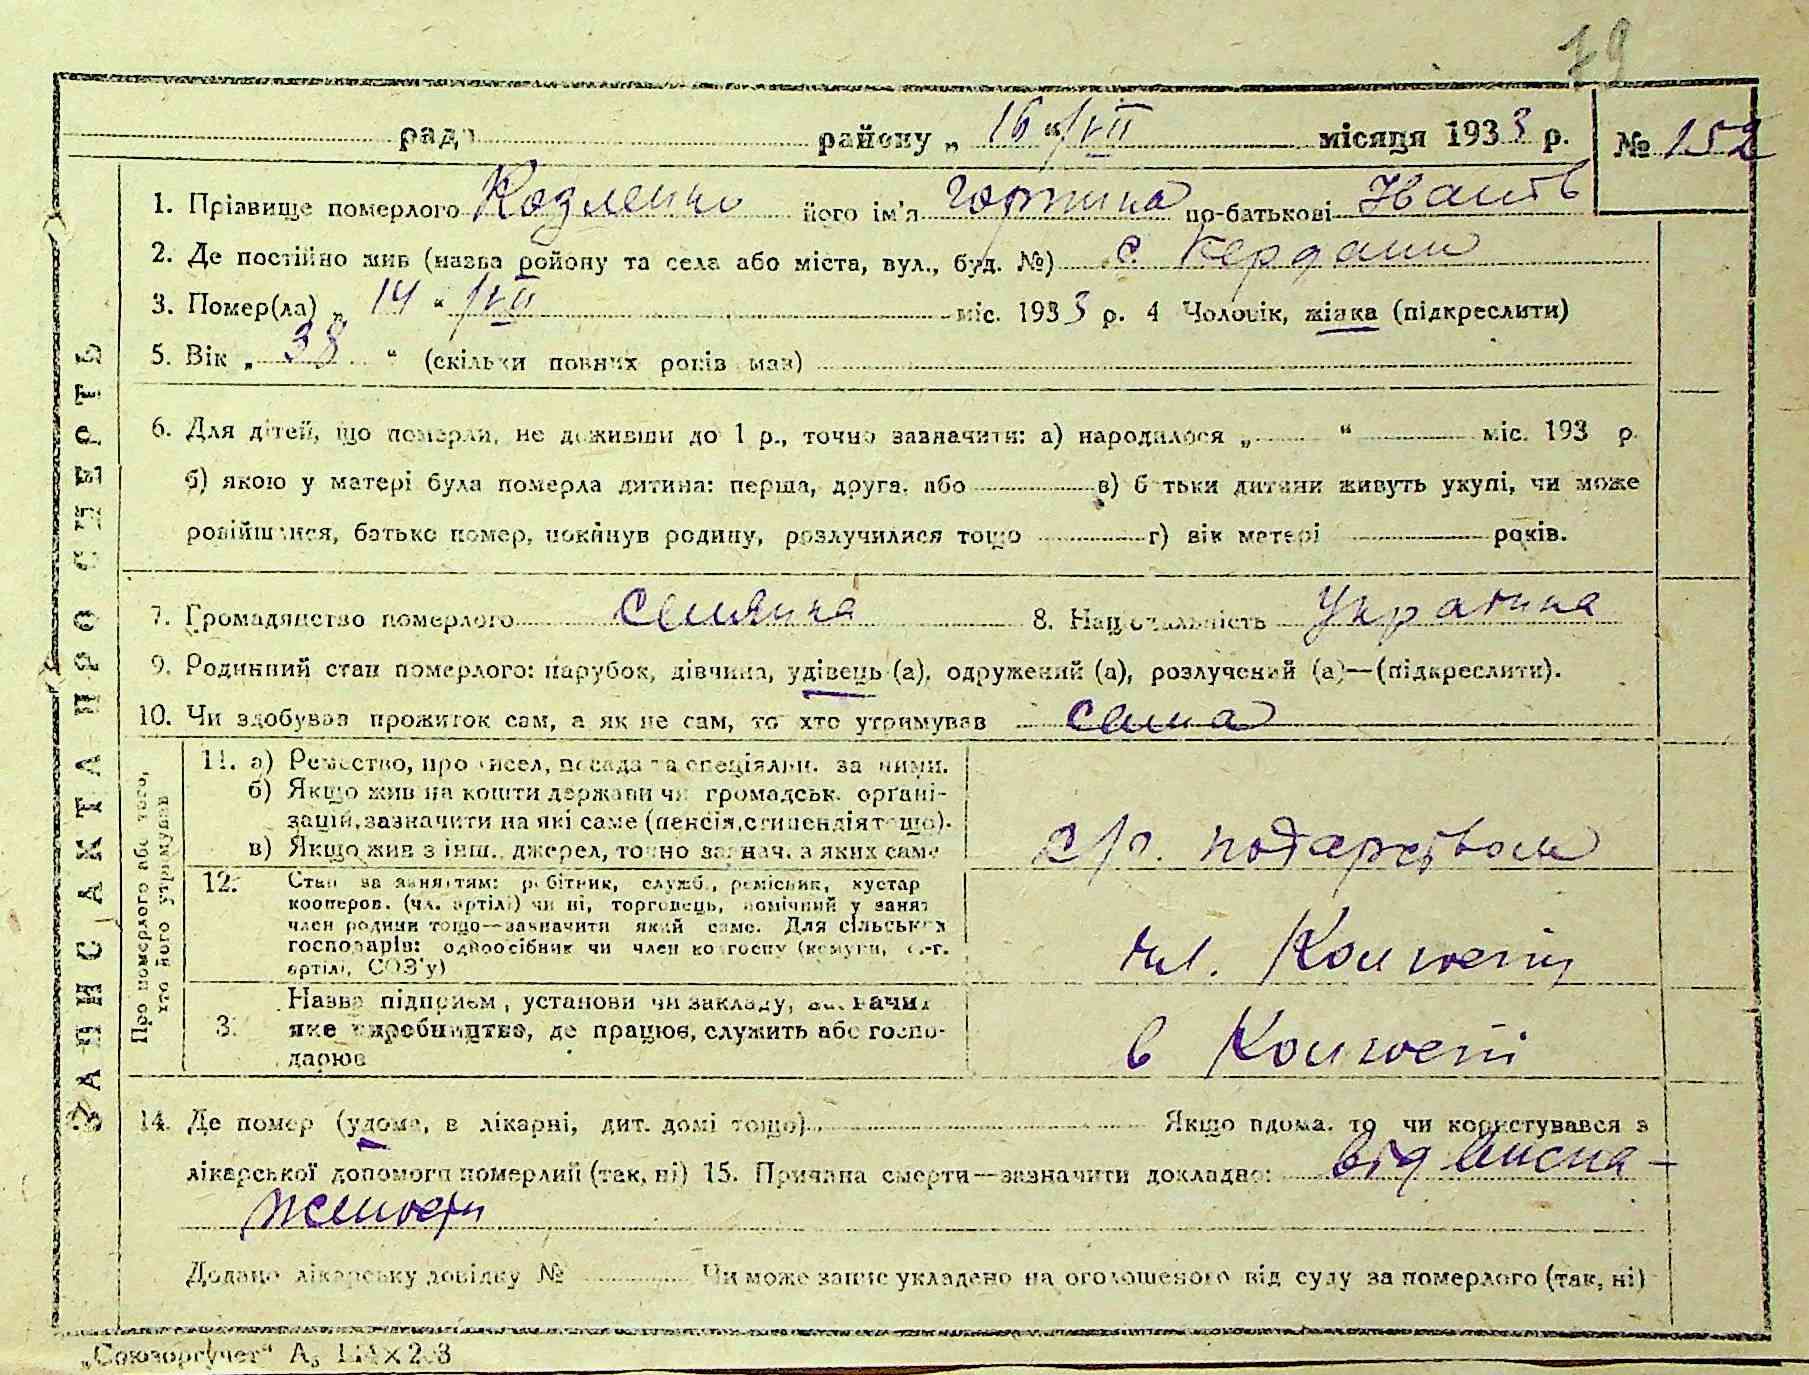 79
рада района „ 16 “ VII місяця 1933 р. № 152
1. Прізвище померлого Козленко його ім'я Горпина по-батькові Іванів
2. Де постійно жив (назва ройону та села або міста, вул., буд. №) с. Кердани
3. Помер(ла) „ 14 “ VII міс. 1933 р. 4 Чоловік, жінка (підкреслити)
5. Вік „ 38 “ (скільки повних років мав)
6. Для дітей, що померли, не доживши до 1 р., точно зазначити: а) народилося „ “ міс. 193 р.
б) якою у матері була померла дитина: перша, друга, або в) батьки дитини живуть укупі, чи може
розійшлися, батько помер, покинув родину, розлучилися тощо г) вік матері років.
7. Громадянство померлого селянка 8. Національність Українка
9. Родинний стан померлого: парубок, дівчина, удівець (а), одружений (а), розлучений (а)—(підкреслити).
10. Чи здобував прожиток сам, а як не сам, то хто утримував сама
11. а) Ремество, промисел, посада та спеціяльн. за ними.
б) Якщо жив на кошти держави чи громадськ. органі-
зацій, зазначити на які саме (пенсія, стипендія тощо).
в) Якщо жив з інш. джерел, точно зазнач. з яких саме
с/г.
12. Стан за заняттям: робітник, служб., ремісник, кустар
кооперов. (чл. артілі) чи ні, торговець, помічний у занят
член родини тощо—зазначити який саме. Для сільських
господарів: одноосібник чи член колгоспу (комуни, с.-г.
артілі, СОЗ'у)
чл.
3. Назва підприєм, установи чи закладу, зазначит
яке виробництво, де працює, служить або госпо-
дарює
в
14. Де помер (удома, в лікарні, дит. домі тощо) Якщо вдома, то чи користувався з
лікарської допомоги померлий (так, ні) 15. Причина смерти—зазначити докладно: від висна-
жености
Додано лікарську довідку № Чи може запис укладено на оголошеного від суду за померлого (так, ні)
„Союзоргучет“
ЗАПИС АКТА ПРО СМЕРТЬ
Про померлого або того,
хто його утримував